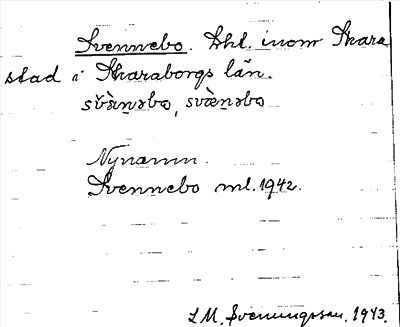 Svennebo. Lht. inom Skara
stad i Skaraborgs län.
sv̄ànəbo, svànəbo
Nynamn.
Svennebo ml. 1942.
L M. Svenungsson, 1943.